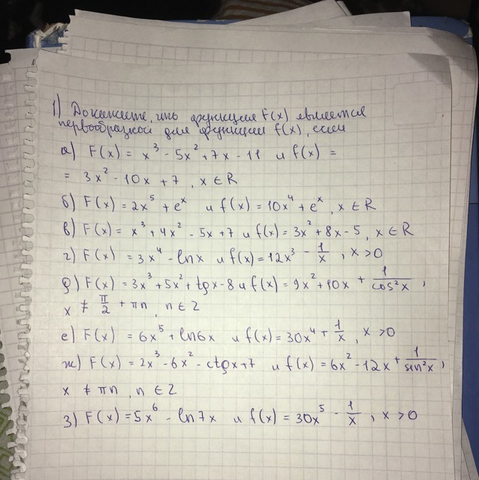 1) Докажите, что функция F(x) является
первообразной для функции f(x), если
а) F(x) = x³ - 5x² + 7x - 11 и f(x) =
= 3x² - 10x + 7, x ∈ R
б) F(x) = 2x⁵ + eˣ и f(x) = 10x⁴ + eˣ, x ∈ R
в) F(x) = x³ + 4x² - 5x + 7 и f(x) = 3x² + 8x - 5, x ∈ R
г) F(x) = 3x⁴ - lnx и f(x) = 12x³ - 1/x, x > 0
д) F(x) = 3x³ + 5x² + tgx - 8 и f(x) = 9x² + 10x + 1/cos²x,
x ≠ π/2 + πn, n ∈ Z
е) F(x) = 6x⁵ + ln6x и f(x) = 30x⁴ + 1/x, x > 0
ж) F(x) = 2x³ - 6x² - ctgx + 7 и f(x) = 6x² - 12x + 1/sin²x,
x ≠ πn, n ∈ Z
з) F(x) = 5x⁶ - ln7x и f(x) = 30x⁵ - 1/x, x > 0